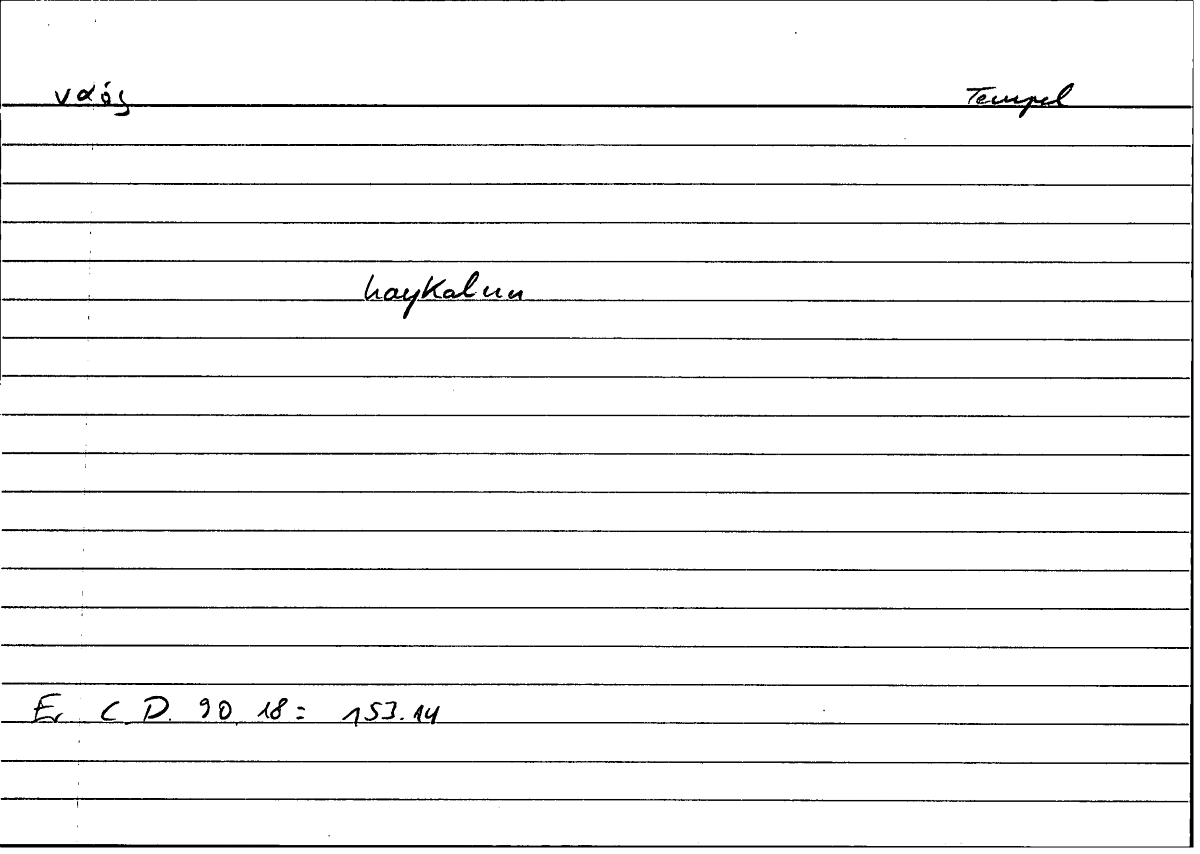 ναός Tempel
haykalun
Er C. D. 90 18 = 153.14